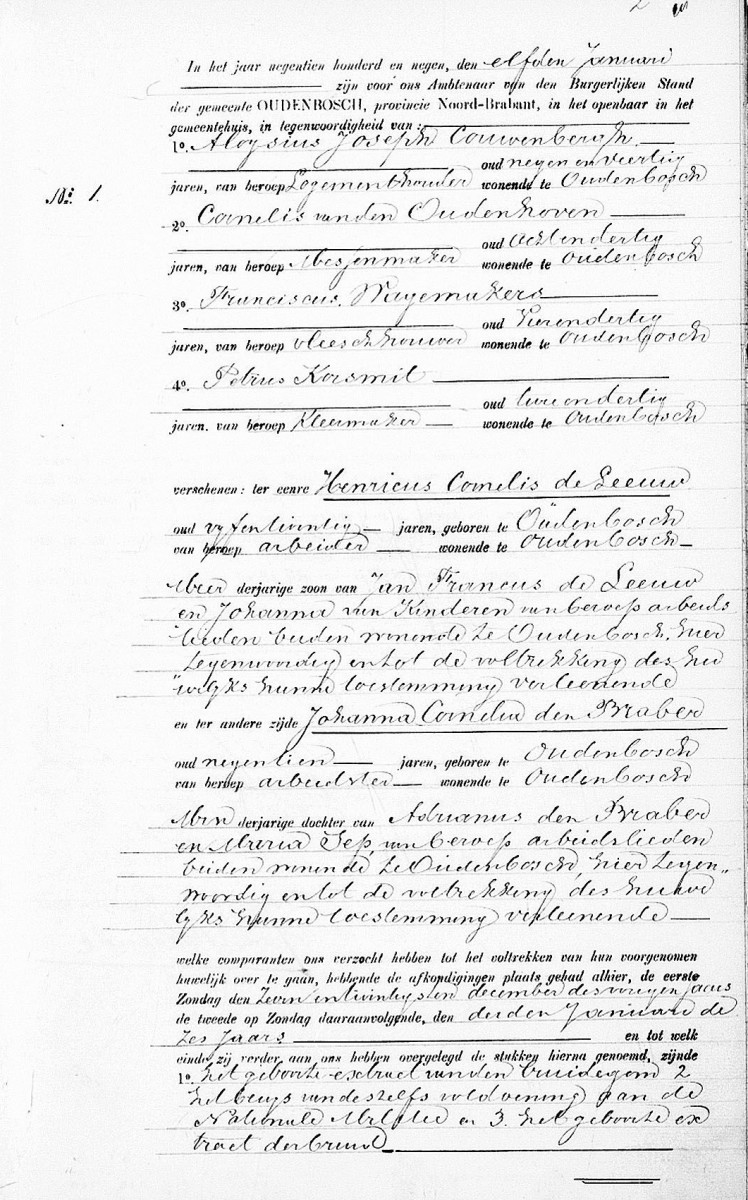 In het jaar negentien honderd en negen, den elfden Januari
zijn voor ons Ambtenaar van den Burgerlijken Stand
der gemeente OUDENBOSCH, provincie Noord-Brabant, in het openbaar in het
gemeentehuis, in tegenwoordigheid van:
1o. Aloysius Joseph Couwenbergh
oud negen en veertig
No. 1.
jaren, van beroep Logementhouder wonende te Oudenbosch
2o. Cornelis van den Oudenhoven
oud achtendertig
jaren, van beroep wonende te Oudenbosch
3o. Franciscus Wagemakers
oud vierendertig
jaren, van beroep vleeschhouwer wonende te Oudenbosch
4o. Petrus Korsmit
oud tweeendertig
jaren. van beroep Kleermaker wonende te Oudenbosch
verschenen: ter eenre Henricus Cornelis de Leeuw
oud vyfentwintig jaren, geboren te Oudenbosch
van beroep arbeider wonende te Oudenbosch
Meer derjarige zoon van Jan Francus de Leeuw
en Johanna van Kinderen van beroep arbeids
lieden beiden wonende te Oudenbosch, hier
tegenwoordig en tot de voltrekking des hu
welyks hunne toestemming verleenende
en ter andere zijde Johanna Cornelia den Braber
oud negentien jaren, geboren te Oudenbosch
van beroep arbeidster wonende te Oudenbosch
Min derjarige dochter van Adrianus den Braber
en Maria Jep, van beroep arbeidslieden
beiden wonende te Oudenbosch, hier tegen„
woordig en tot de voltrekking des huwe
lyks hunne toestemming verleenende
welke comparanten ons verzocht hebben tot het voltrekken van hun voorgenomen
huwelijk over te gaan, hebbende de afkondigingen plaats gehad alhier, de eerste
Zondag den Zevenentwintigsten december des vorigen jaars
de tweede op Zondag daaraanvolgende, den derden Januari de
zes jaars en tot welk
einde zij verder aan ons hebben overgelegd de stukken hierna genoemd, zijnde
1o. het geboorte extract van den bruidegom 2
het bewys van deszelfs voldoening aan de
Nationale Militie en 3. het geboorte ex
tract der bruid